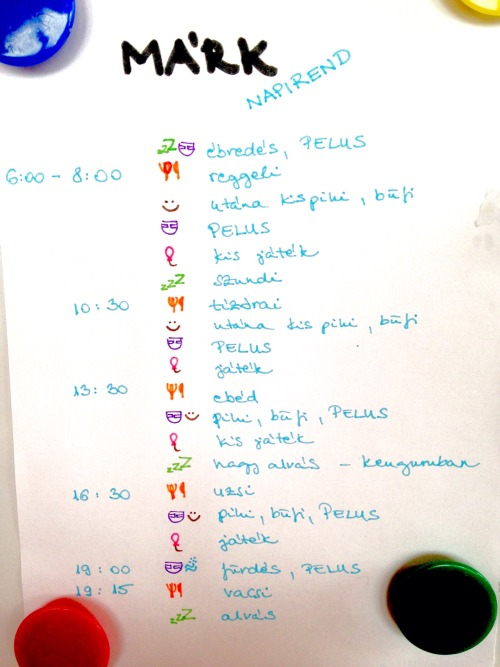 MÁRK
NAPIREND
zZ ébredés, PELUS
6:00 - 8:00 reggeli
utána kis pihi, büfi
PELUS
kis játék
zzZ szundi
10:30 tízórai
utána kis pihi, büfi
PELUS
játék
13:30 ebéd
pihi, büfi, PELUS
kis játék
zzZ nagy alvás - kenguruban
16:30 uzsi
pihi, büfi, PELUS
játék
19:00 fürdés, PELUS
19:15 vacsi
zzZ alvás